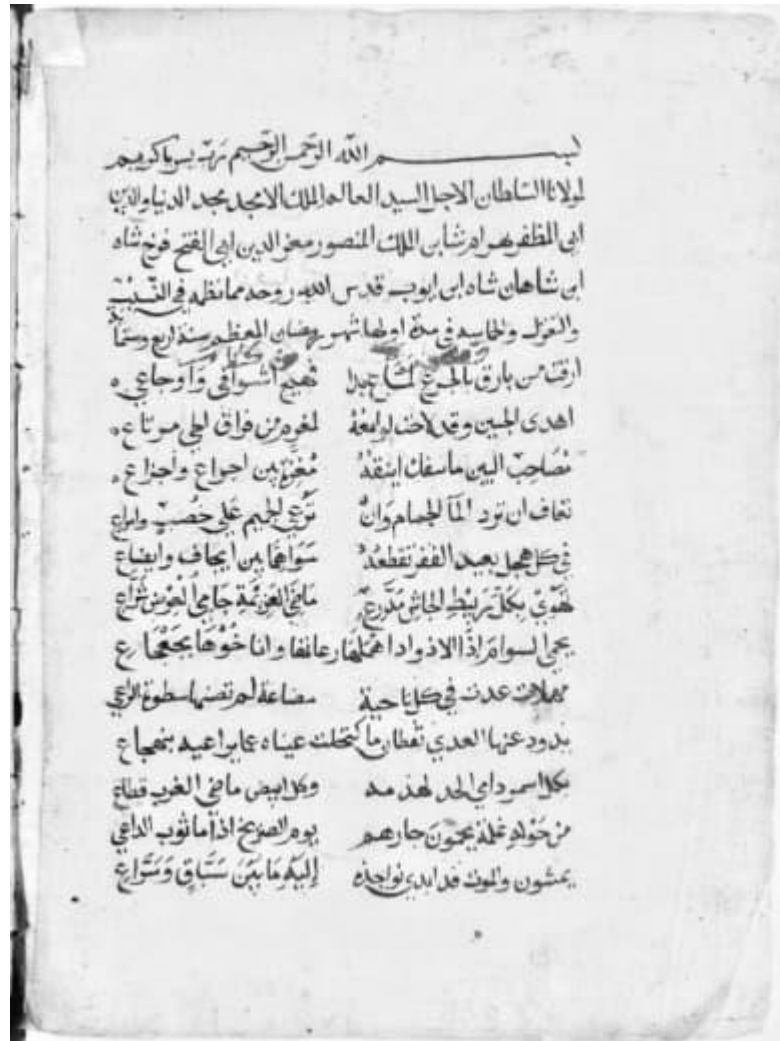 بسم الله الرحمن الرحيم رب يسر يا كريم
لمولانا السلطان الاجل السيد العالم الملك الامجد مجد الدنيا والدين
ابى المظفر بهرام شاه ابن الملك المنصور معز الدين ابى الفتح فرخ شاه
ابن شاهان شاه ابن ايوب قدس الله روحه مما نظمه في النسيب
والغزل والحماسه في مدة اولها شهر رمضان المعظم سنة اربع وستما
ارقت من بارق بالجزع لماع فهيج اشواقي واوجاعي
اهدى الحنين وقد لاحت لوامعه لمغرم من فراق الحي مرتاع
مصاحب البين ما سفك اينقه مغرية بين اجواع واجزاع
تعاف ان ترد الما الجمام وان ترعي الجميم على خصب وامراع
في كل هجل بعيد القفر تقطعه سواهما بين ايجاف وايضاع
تهوي بكل ربيط الجاش مدرع ماضي العزيمة حامي العرض شراع
يحمي السوام اذا الاذواد اهملها رعاتها واناخوها بجعجاع
مهملات غدت في كل ناحية مضاعة لم تصنها سطوة الراعي
يذود عنها العدي يقظان ما اكتحلت عيناه عما يراعيه بتهجاع
بكل اسمر دامي الحد لهذمه وكل ابيض ماضي الغرب قطاع
من حوله غلمة يحمون جارهم يوم الصريخ اذا ما ثوب الداعي
يمشون والموت قد ابدي نواجذه إليه ما بين سباق وسراع